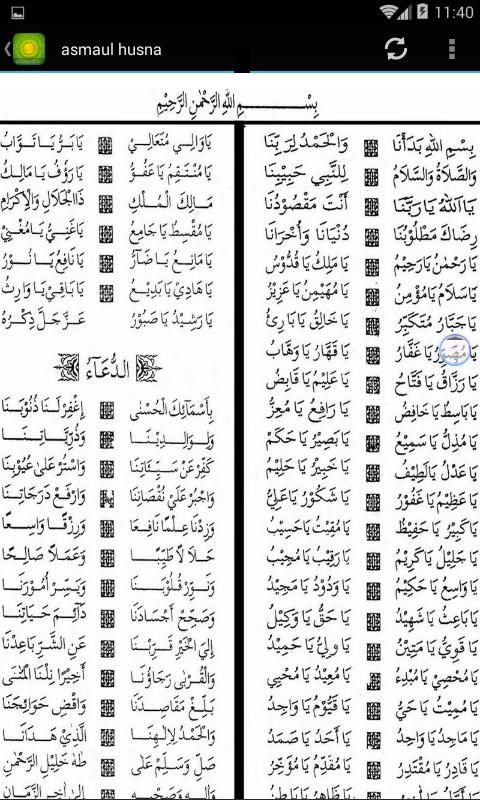 11:40
asmaul husna
بِسْمِ اللهِ الرَّحْمٰنِ الرَّحِيْمِ
بِسْمِ اللهِ بَدَأْنَا وَالْحَمْدُ لِرَبِّنَا
وَالصَّلَاةُ وَالسَّلَامُ لِلنَّبِي حَبِيْبِنَا
يَا اَللهُ يَا رَبَّنَا أَنْتَ مَقْصُوْدُنَا
رِضَاكَ مَطْلُوْبُنَا دُنْيَانَا وَأُخْرَانَا
يَا رَحْمٰنُ يَا رَحِيْمُ يَا مَلِكُ يَا قُدُّوْسُ
يَا سَلَامُ يَا مُؤْمِنُ يَا مُهَيْمِنُ يَا عَزِيْزُ
يَا جَبَّارُ مُتَكَبِّرُ يَا خَالِقُ يَا بَارِئُ
يَا مُصَوِّرُ يَا غَفَّارُ يَا قَهَّارُ يَا وَهَّابُ
يَا رَزَّاقُ يَا فَتَّاحُ يَا عَلِيْمُ يَا قَابِضُ
يَا بَاسِطُ يَا خَافِضُ يَا رَافِعُ يَا مُعِزُّ
يَا مُذِلُّ يَا سَمِيْعُ يَا بَصِيْرُ يَا حَكَمْ
يَا عَدْلُ يَا لَطِيْفُ يَا خَبِيْرُ يَا حَلِيْمُ
يَا عَظِيْمُ يَا غَفُوْرُ يَا شَكُوْرُ يَا عَلِيُّ
يَا كَبِيْرُ يَا حَفِيْظُ يَا مُقِيْتُ يَا حَسِيْبُ
يَا جَلِيْلُ يَا كَرِيْمُ يَا رَقِيْبُ يَا مُجِيْبُ
يَا وَاسِعُ يَا حَكِيْمُ يَا وَدُوْدُ يَا مَجِيْدُ
يَا بَاعِثُ يَا شَهِيْدُ يَا حَقُّ يَا وَكِيْلُ
يَا قَوِيُّ يَا مَتِيْنُ يَا وَلِيُّ يَا حَمِيْدُ
يَا مُحْصِيْ يَا مُبْدِءُ يَا مُعِيْدُ يَا مُحْيِي
يَا مُمِيْتُ يَا حَيُّ يَا قَيُّوْمُ يَا وَاجِدُ
يَا مَاجِدُ يَا وَاحِدُ يَا أَحَدُ يَا صَمَدُ
يَا قَادِرُ يَا مُقْتَدِرُ يَا مُقَدِّمُ يَا مُؤَخِّرُ
يَا ظَاهِرُ يَا بَاطِنُ
يَا وَالِي مُتَعَالِيْ يَا بَرُّ يَا تَوَّابُ
يَا مُنْتَقِمُ يَا عَفُوُّ يَا رَؤُفُ يَا مَالِكُ
مَالِكَ الْمُلْكِ ذَا الْجَلَالِ وَالْإِكْرَامِ
يَا مُقْسِطُ يَا جَامِعُ يَا غَنِيُّ يَا مُغْنِيْ
يَا مَانِعُ يَا ضَآرُّ يَا نَافِعُ يَا نُوْرُ
يَا هَادِيْ يَا بَدِيْعُ يَا بَاقِيْ يَا وَارِثُ
يَا رَشِيْدُ يَا صَبُوْرُ عَزَّ جَلَّ ذِكْرُهُ
الدُّعَآءُ
بِأَسْمَائِكَ الْحُسْنٰى إِغْفِرْ لَنَا ذُنُوْبَنَا
وَلِوَالِدِيْنَا وَذُرِّيَّاتِنَا
كَفِّرْ عَنْ سَيِّئَاتِنَا وَاسْتُرْ عَلٰى عُيُوْبِنَا
وَاجْبُرْ عَلٰى نُقْصَانِنَا وَارْفَعْ دَرَجَاتِنَا
وَزِدْنَا عِلْمًا نَافِعًا وَرِزْقًا وَاسِعًا
حَلَالًا طَيِّبًا وَعَمَلًا صَالِحًا
وَنَوِّرْ قُلُوْبَنَا وَيَسِّرْ أُمُوْرَنَا
وَصَحِّحْ أَجْسَادَنَا دَآئِمَ حَيَاتِنَا
إِلَى الْخَيْرِ قَرِّبْنَا عَنِ الشَّرِّ بَاعِدْنَا
وَالْقُرْبٰى رَجَاؤُنَا أَخِيْرًا نِلْنَا الْمُنٰى
بَلِّغْ مَقَاصِدَنَا وَاقْضِ حَوَائِجَنَا
وَالْحَمْدُ لِإِلٰهِنَا الَّذِيْ هَدَانَا
صَلِّ وَسَلِّمْ عَلٰى طٰهٰ خَلِيْلِ الرَّحْمٰنِ
وَآلِهِ وَصَحْبِهِ إِلٰى آخِرِ الزَّمَانِ